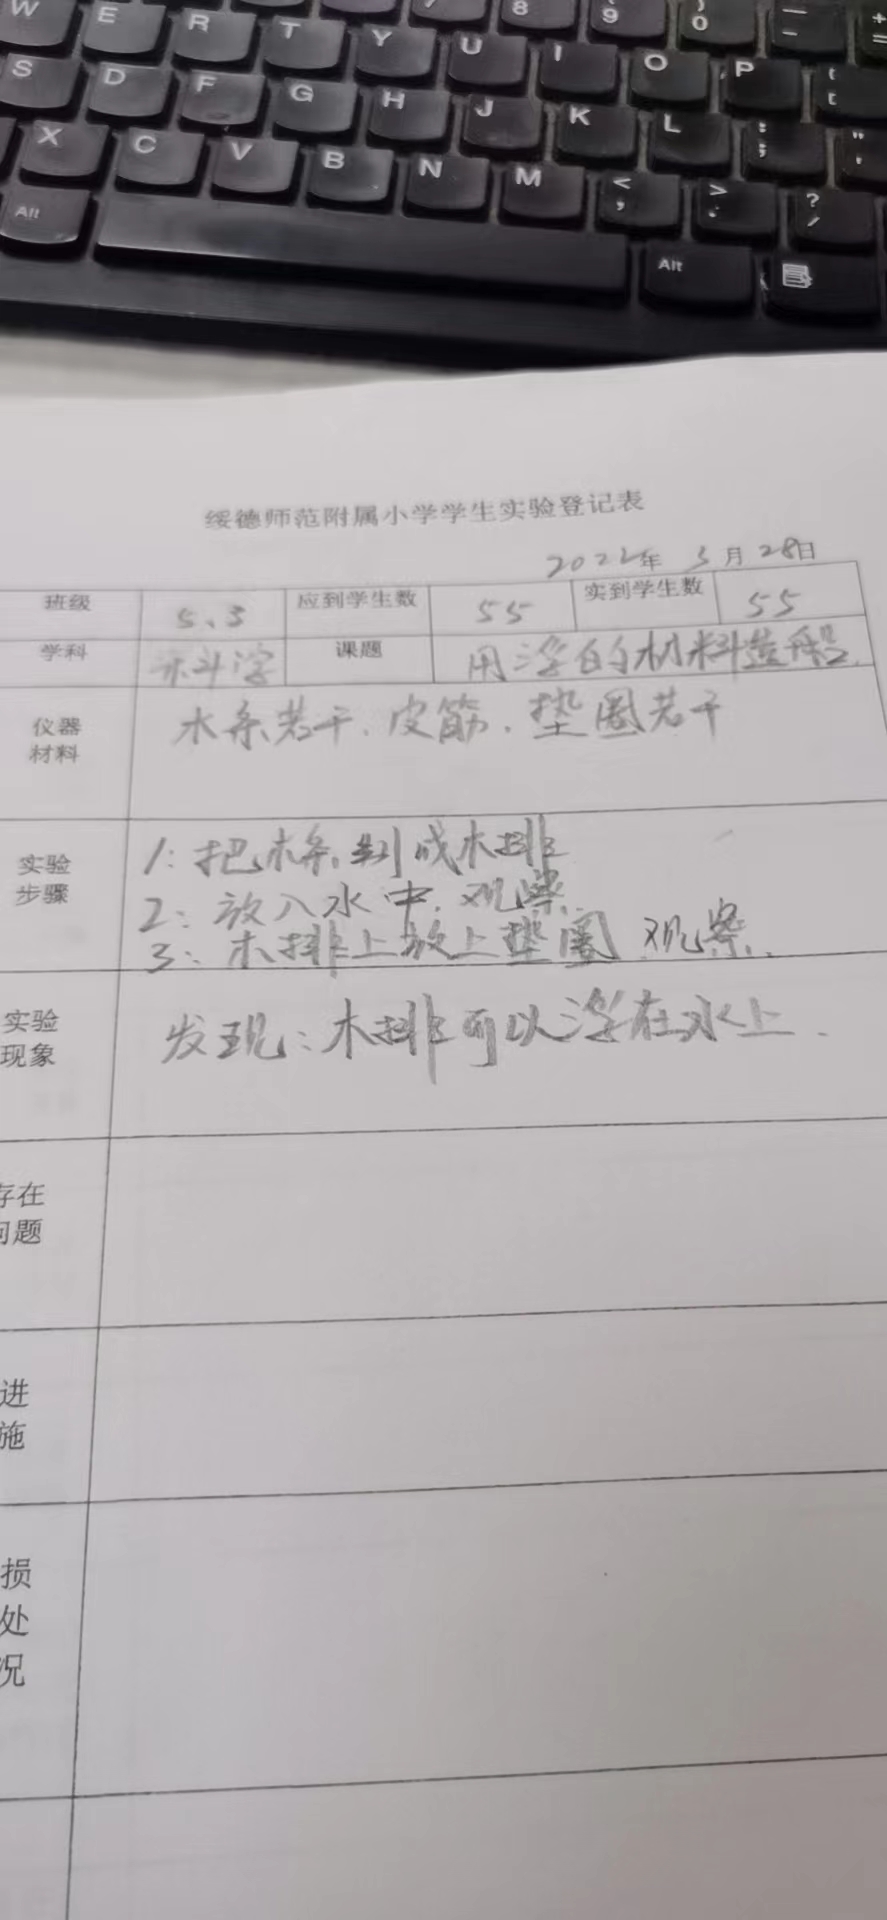 W E R T Y U I O P
8 9 ) 0
S D F G H J K L : ; " '
X C V B N M < , > . ? /
Alt Alt
绥德师范附属小学学生实验登记表
2022年 3月28日
班级 5.3 应到学生数 55 实到学生数 55
学科 科学 课题 用浮的材料造船
仪器材料 木条若干.皮筋.垫圈若干
实验步骤 1:把木条制成木排
2:放入水中.观察.
3:木排上放上垫圈.观察.
实验现象 发现:木排可以浮在水上.
存在
问题
进
施
损
处
况